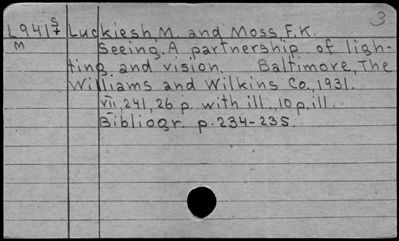 3
L941 S/7 Luckiesh, M. and Moss, F.K.
M Seeing. A partnership of ligh-
ting and vision. Baltimore, The
Williams and Wilkins Co., 1931.
VII, 241, 26 p. with ill., 10 p. ill.
Bibliogr. p. 234-235.